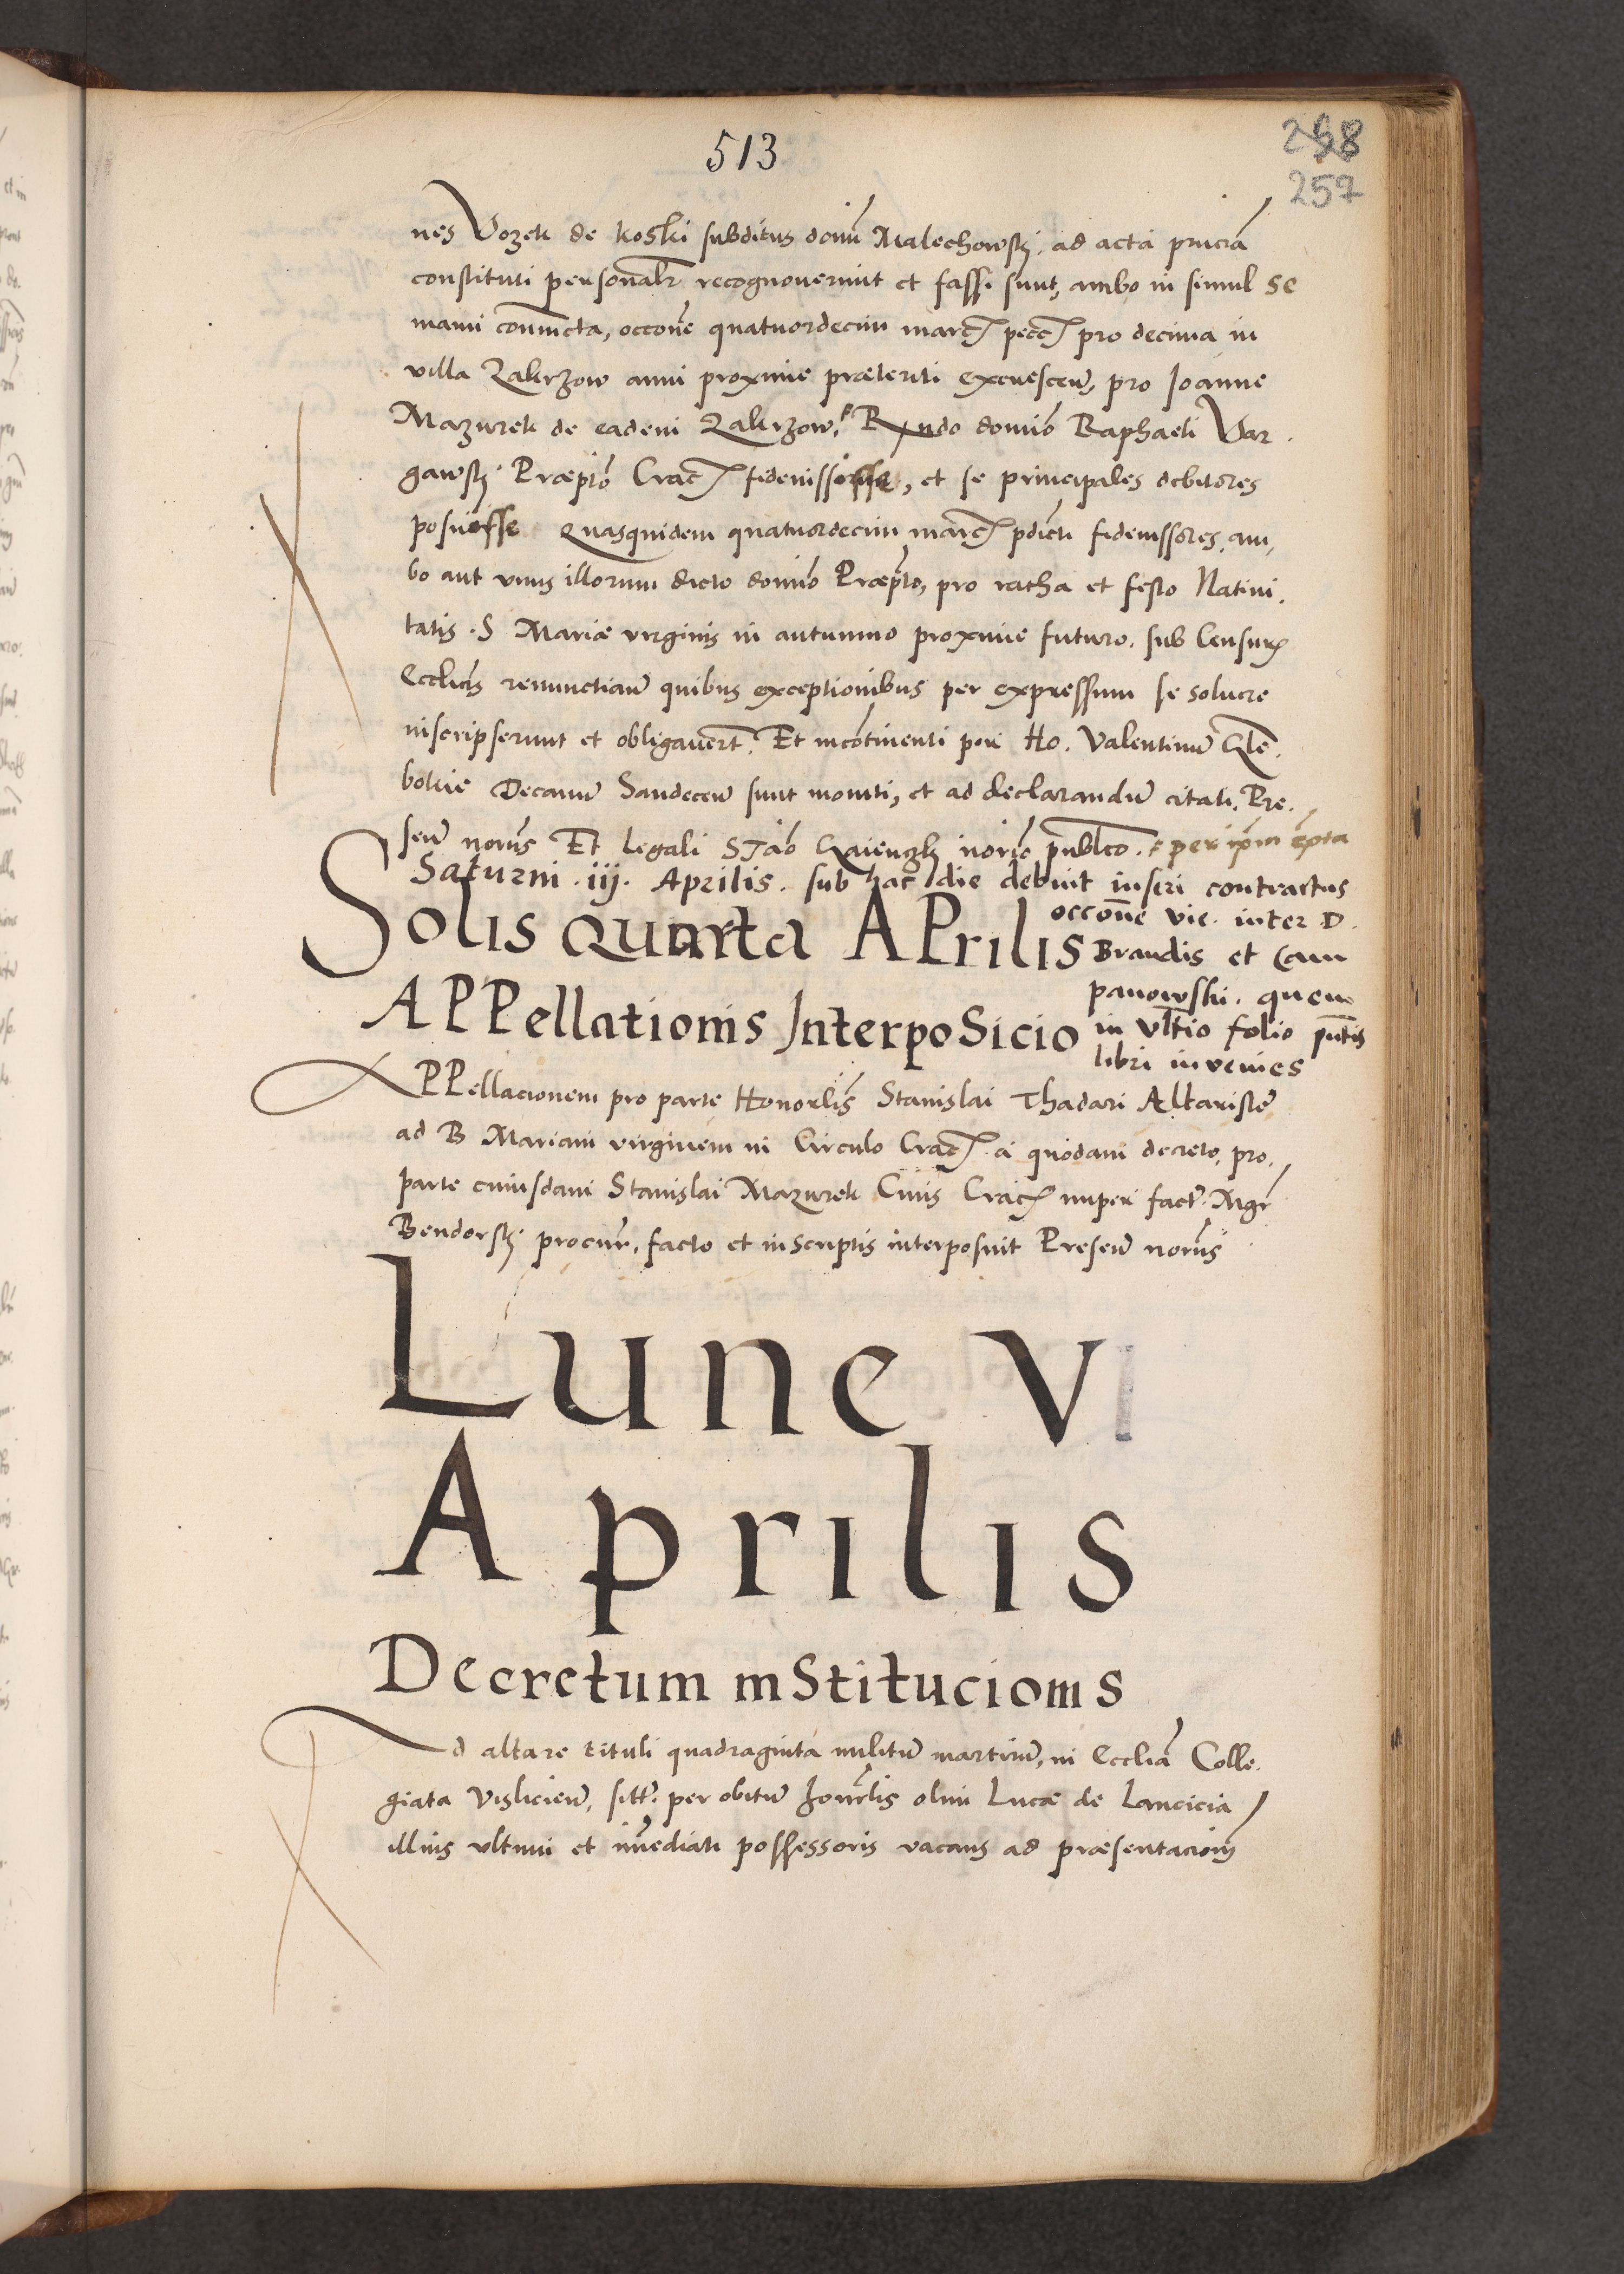 513
258
257
nes Vozek de koski subditus domi Malechowskj. ad acta prncia
constituti personalr recognoverunt et fassi sunt, ambo in simul se
manu coniuncta, occone quatuordecim marc pecc pro decima in
villa Zakrzow anni proxime præteriti excrescen, pro Joanne
Mazurek de eadem Zakrzow, Rndo domino Raphaeli Var.
gawskj Præpto Crac fideiussisse, et se principales debitores
posuisse Quasquidem quatuordecim marc pdicti fideiussores, am,
bo aut vnus illorum dicto domino Præpto, pro ratha et festo Nativi.
tatis . S Mariæ virginis in autumno proxime futuro. sub Censuris
Ecclicis renunctian quibus exceptionibus per expressum se solvere
inscripserunt et obligavert. Et incontinenti per Ho. Valentinum Gle.
bokie Decanum Sandecen sunt moniti, et ad declarandum citati. Pre.
sen noris Et Legali STao norio publco. per ipm
Saturni . iij. Aprilis. sub hac die debuit inseri contractus
occone vic. inter D.
Brandis et Cam
panowski. quem
in vltio folio pntis
libri invenies
Solis Quarta APrilis
APPellationis InterpoSicio
APPellacionem pro parte Honorlis Stanislai Thadari Altaristæ
ad B Mariam virginem in Circulo Crac. a quodam decreto, pro,
parte cuiusdam Stanislai Mazurek Civis Crac nuper fact. Mgr
Bendorskj procur, facto et in scriptis interposuit Presen noris
Lune VI
Aprilis
Decretum inStitucionis
Ad altare tituli quadraginta militum martirum, in Ecclia Colle.
giata Vislicien, sitt per obitum honrlis olim Lucæ de Lancicia
illius vltimi et immediati possessoris vacans ad præsentacionem